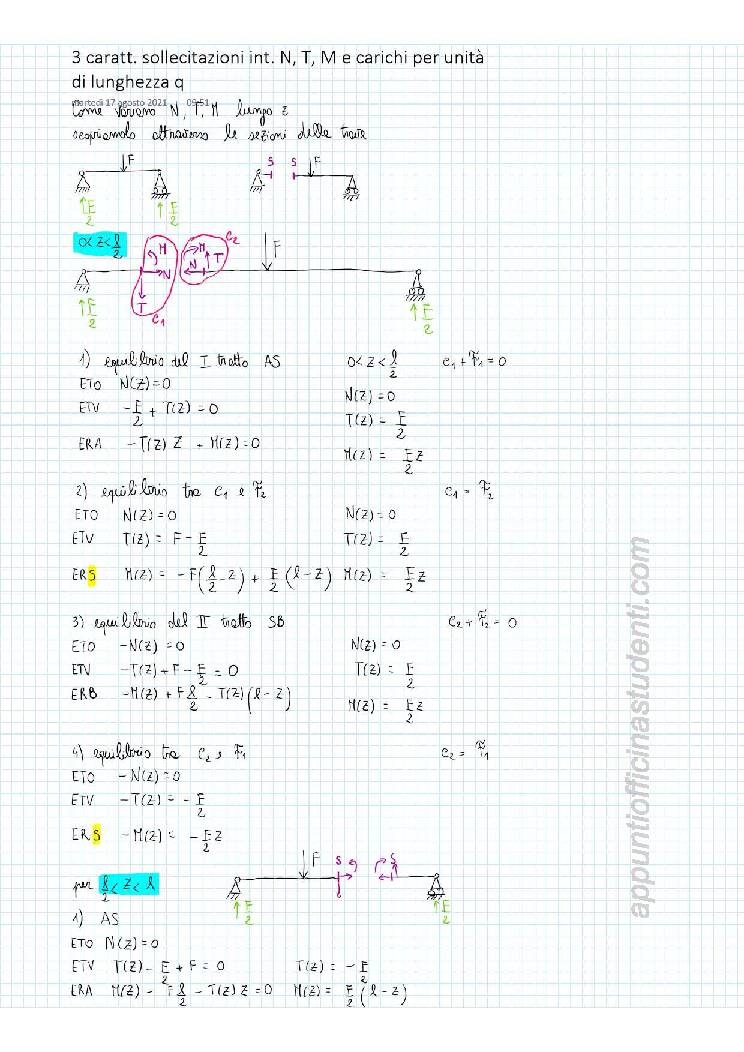 3 caratt. sollecitazioni int. N, T, M e carichi per unità
di lunghezza q
martedì 17 agosto 2021 09:51
Come variano N, T, M lungo z
scopriamolo attraverso le sezioni della trave
F S S F
F/2 F/2
0<z<l/2 M N T c1 M N T c2 F
F/2 F/2
1) equilibrio del I tratto AS 0<z<l/2 c1 + F1 = 0
ETO N(z)=0 N(z)=0
ETV -F/2 + T(z) = 0 T(z) = F/2
ERA -T(z) z + M(z)=0 M(z) = F/2 z
2) equilibrio tra c1 e F2 c1 = F2
ETO N(z)=0 N(z)=0
ETV T(z) = F - F/2 T(z) = F/2
ERS M(z) = -F(l/2 - z) + F/2 (l - z) M(z) = F/2 z
3) equilibrio del II tratto SB c2 + F2 = 0
ETO -N(z) = 0 N(z)=0
ETV -T(z) + F - F/2 = 0 T(z) = F/2
ERB -M(z) + F l/2 - T(z)(l - z) M(z) = F/2 z
4) equilibrio tra c2 e F1 c2 = F1
ETO -N(z)=0
ETV -T(z) = -F/2
ERS -M(z) = -F/2 z
F S S
per l/2 < z < l F/2 F/2
1) AS
ETO N(z)=0
ETV T(z) - F/2 + F = 0 T(z) = -F/2
ERA M(z) - F l/2 - T(z) z = 0 M(z) = F/2 (l - z)
appuntiofficinastudenti.com